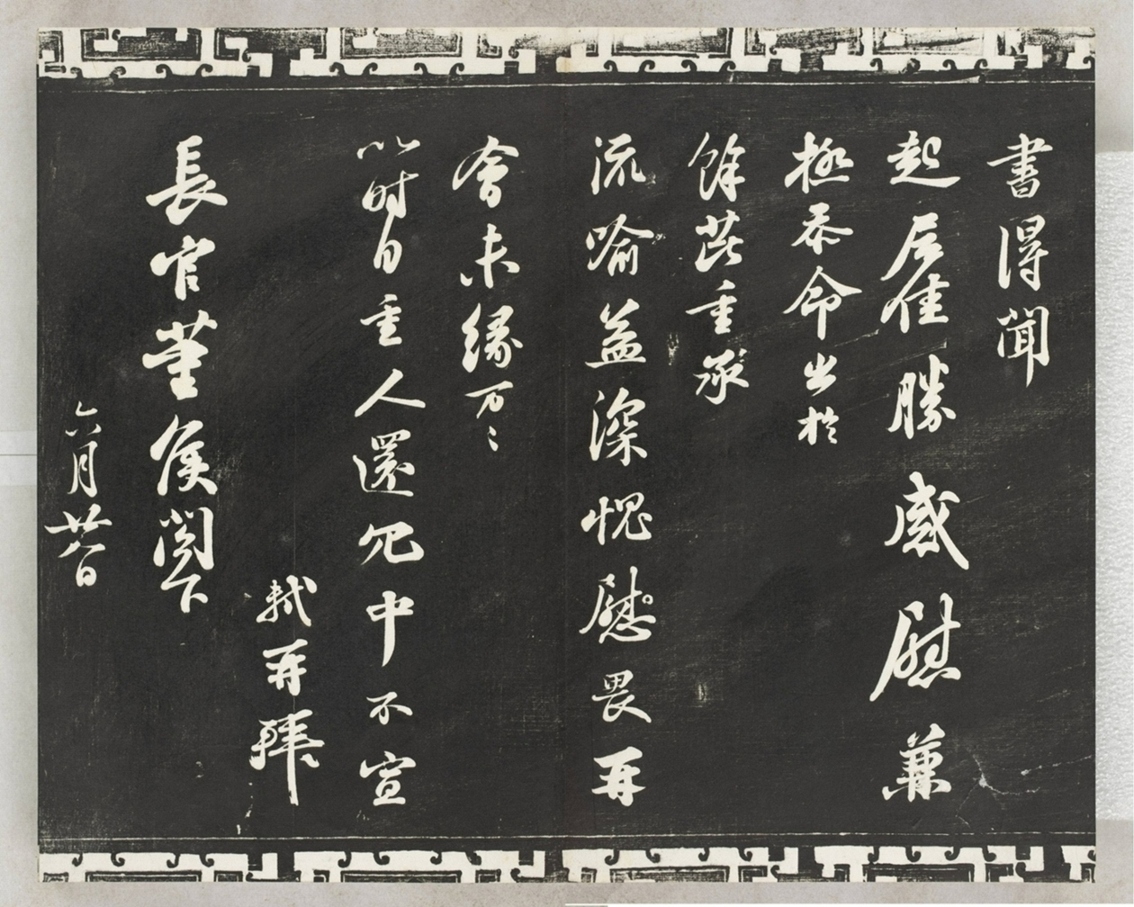 書得聞
起居佳勝感慰兼
極忝命出於
餘芘重承
流喻益深愧慰畏再
會未緣万〻
以时自重人還冗中不宣
軾再拜
長官董侯閣下
六月廿八日